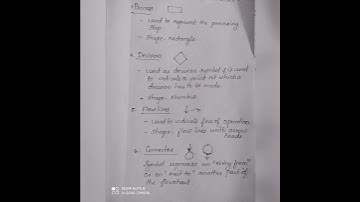 Process
- used to represent the processing
step
- Shape - rectangle
Decision
- used as decision symbol & is used
to indicate a point at which a
decision has to be made
- Shape - rhombus
Flowlines
- used to indicate flow of operation
- Shape - flow lines with arrow
heads
Connector
Symbol represents an "entry from"
or an "exit to" another part of
the flowchart